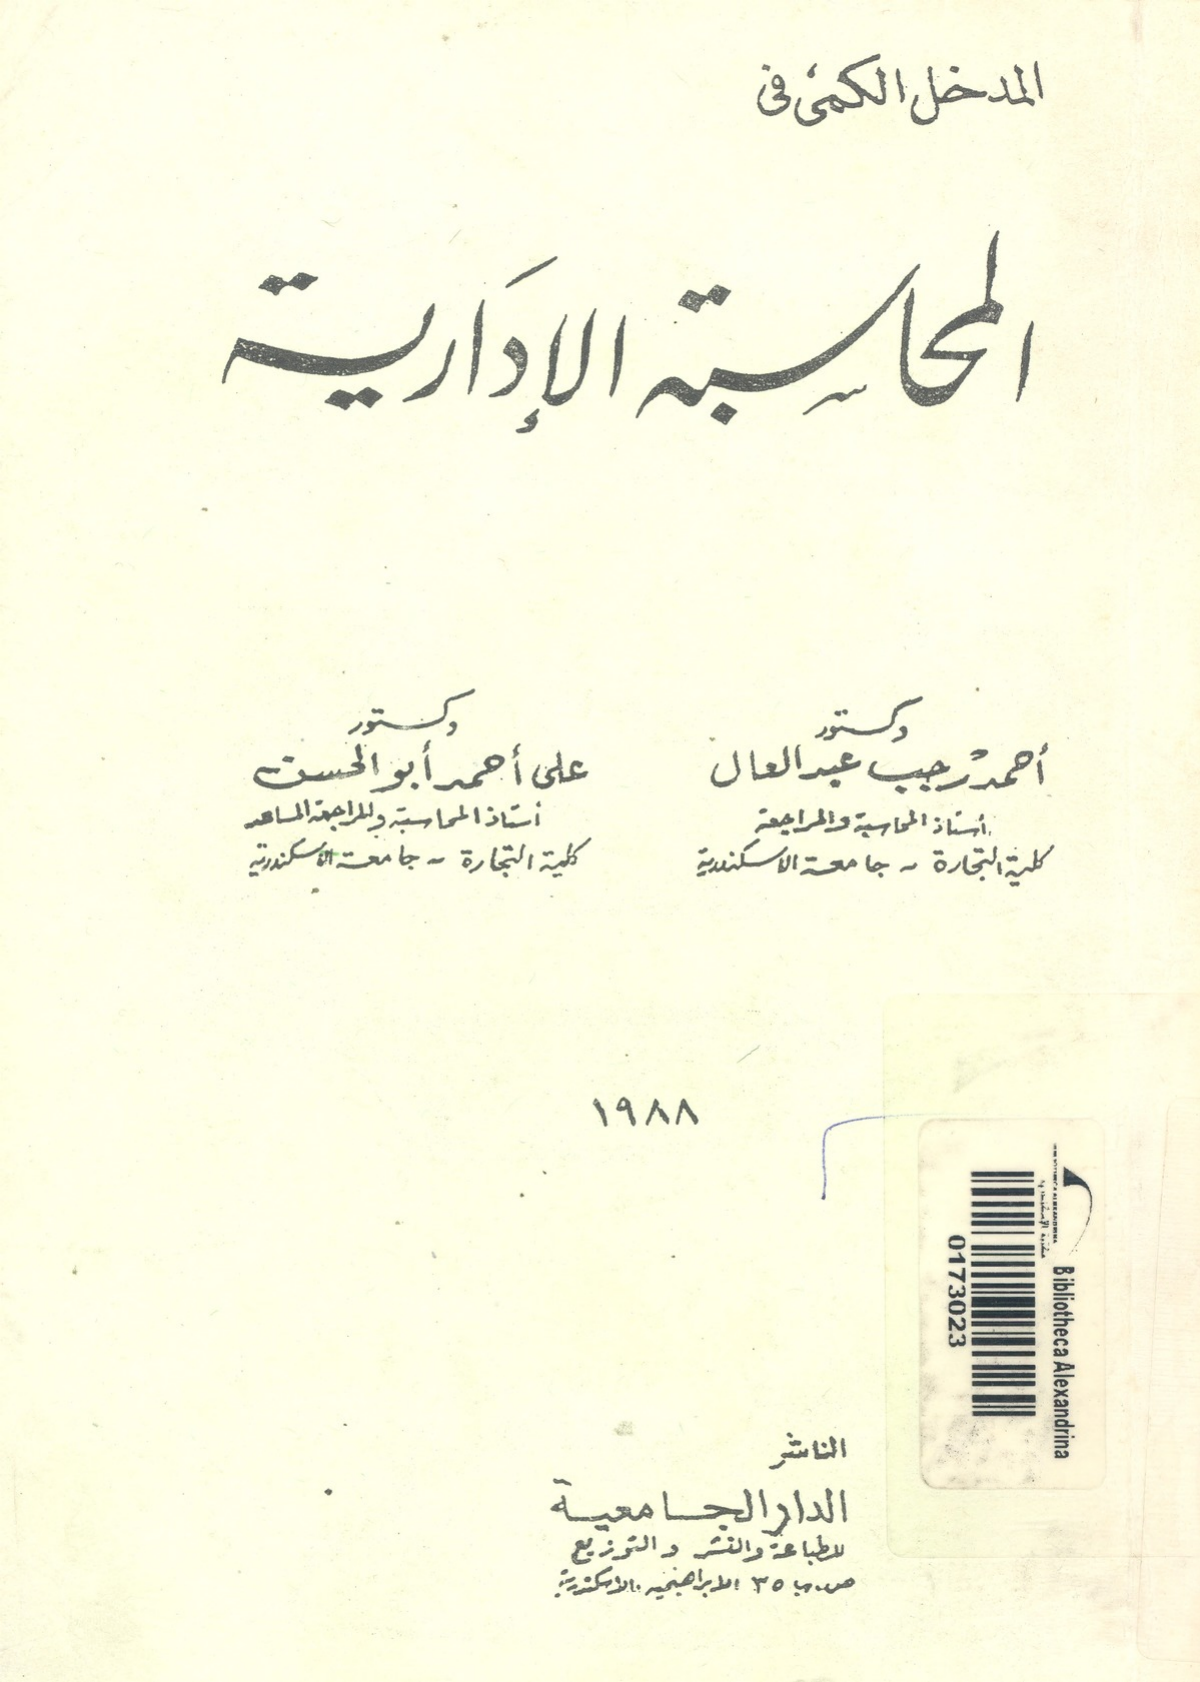 المدخل الكمى فى
المحاسبة الإدارية
دكتور
أحمد رجب عبد العال
أستاذ المحاسبة والمراجعة
كلية التجارة - جامعة الاسكندرية
دكتور
على أحمد أبو الحسن
أستاذ المحاسبة والمراجعة المساعد
كلية التجارة - جامعة الاسكندرية
١٩٨٨
Bibliotheca Alexandrina
0173023
الناشر
الدار الجامعية
للطباعة والنشر والتوزيع
ص.ب ٣٥ الابراهيمية. الاسكندرية